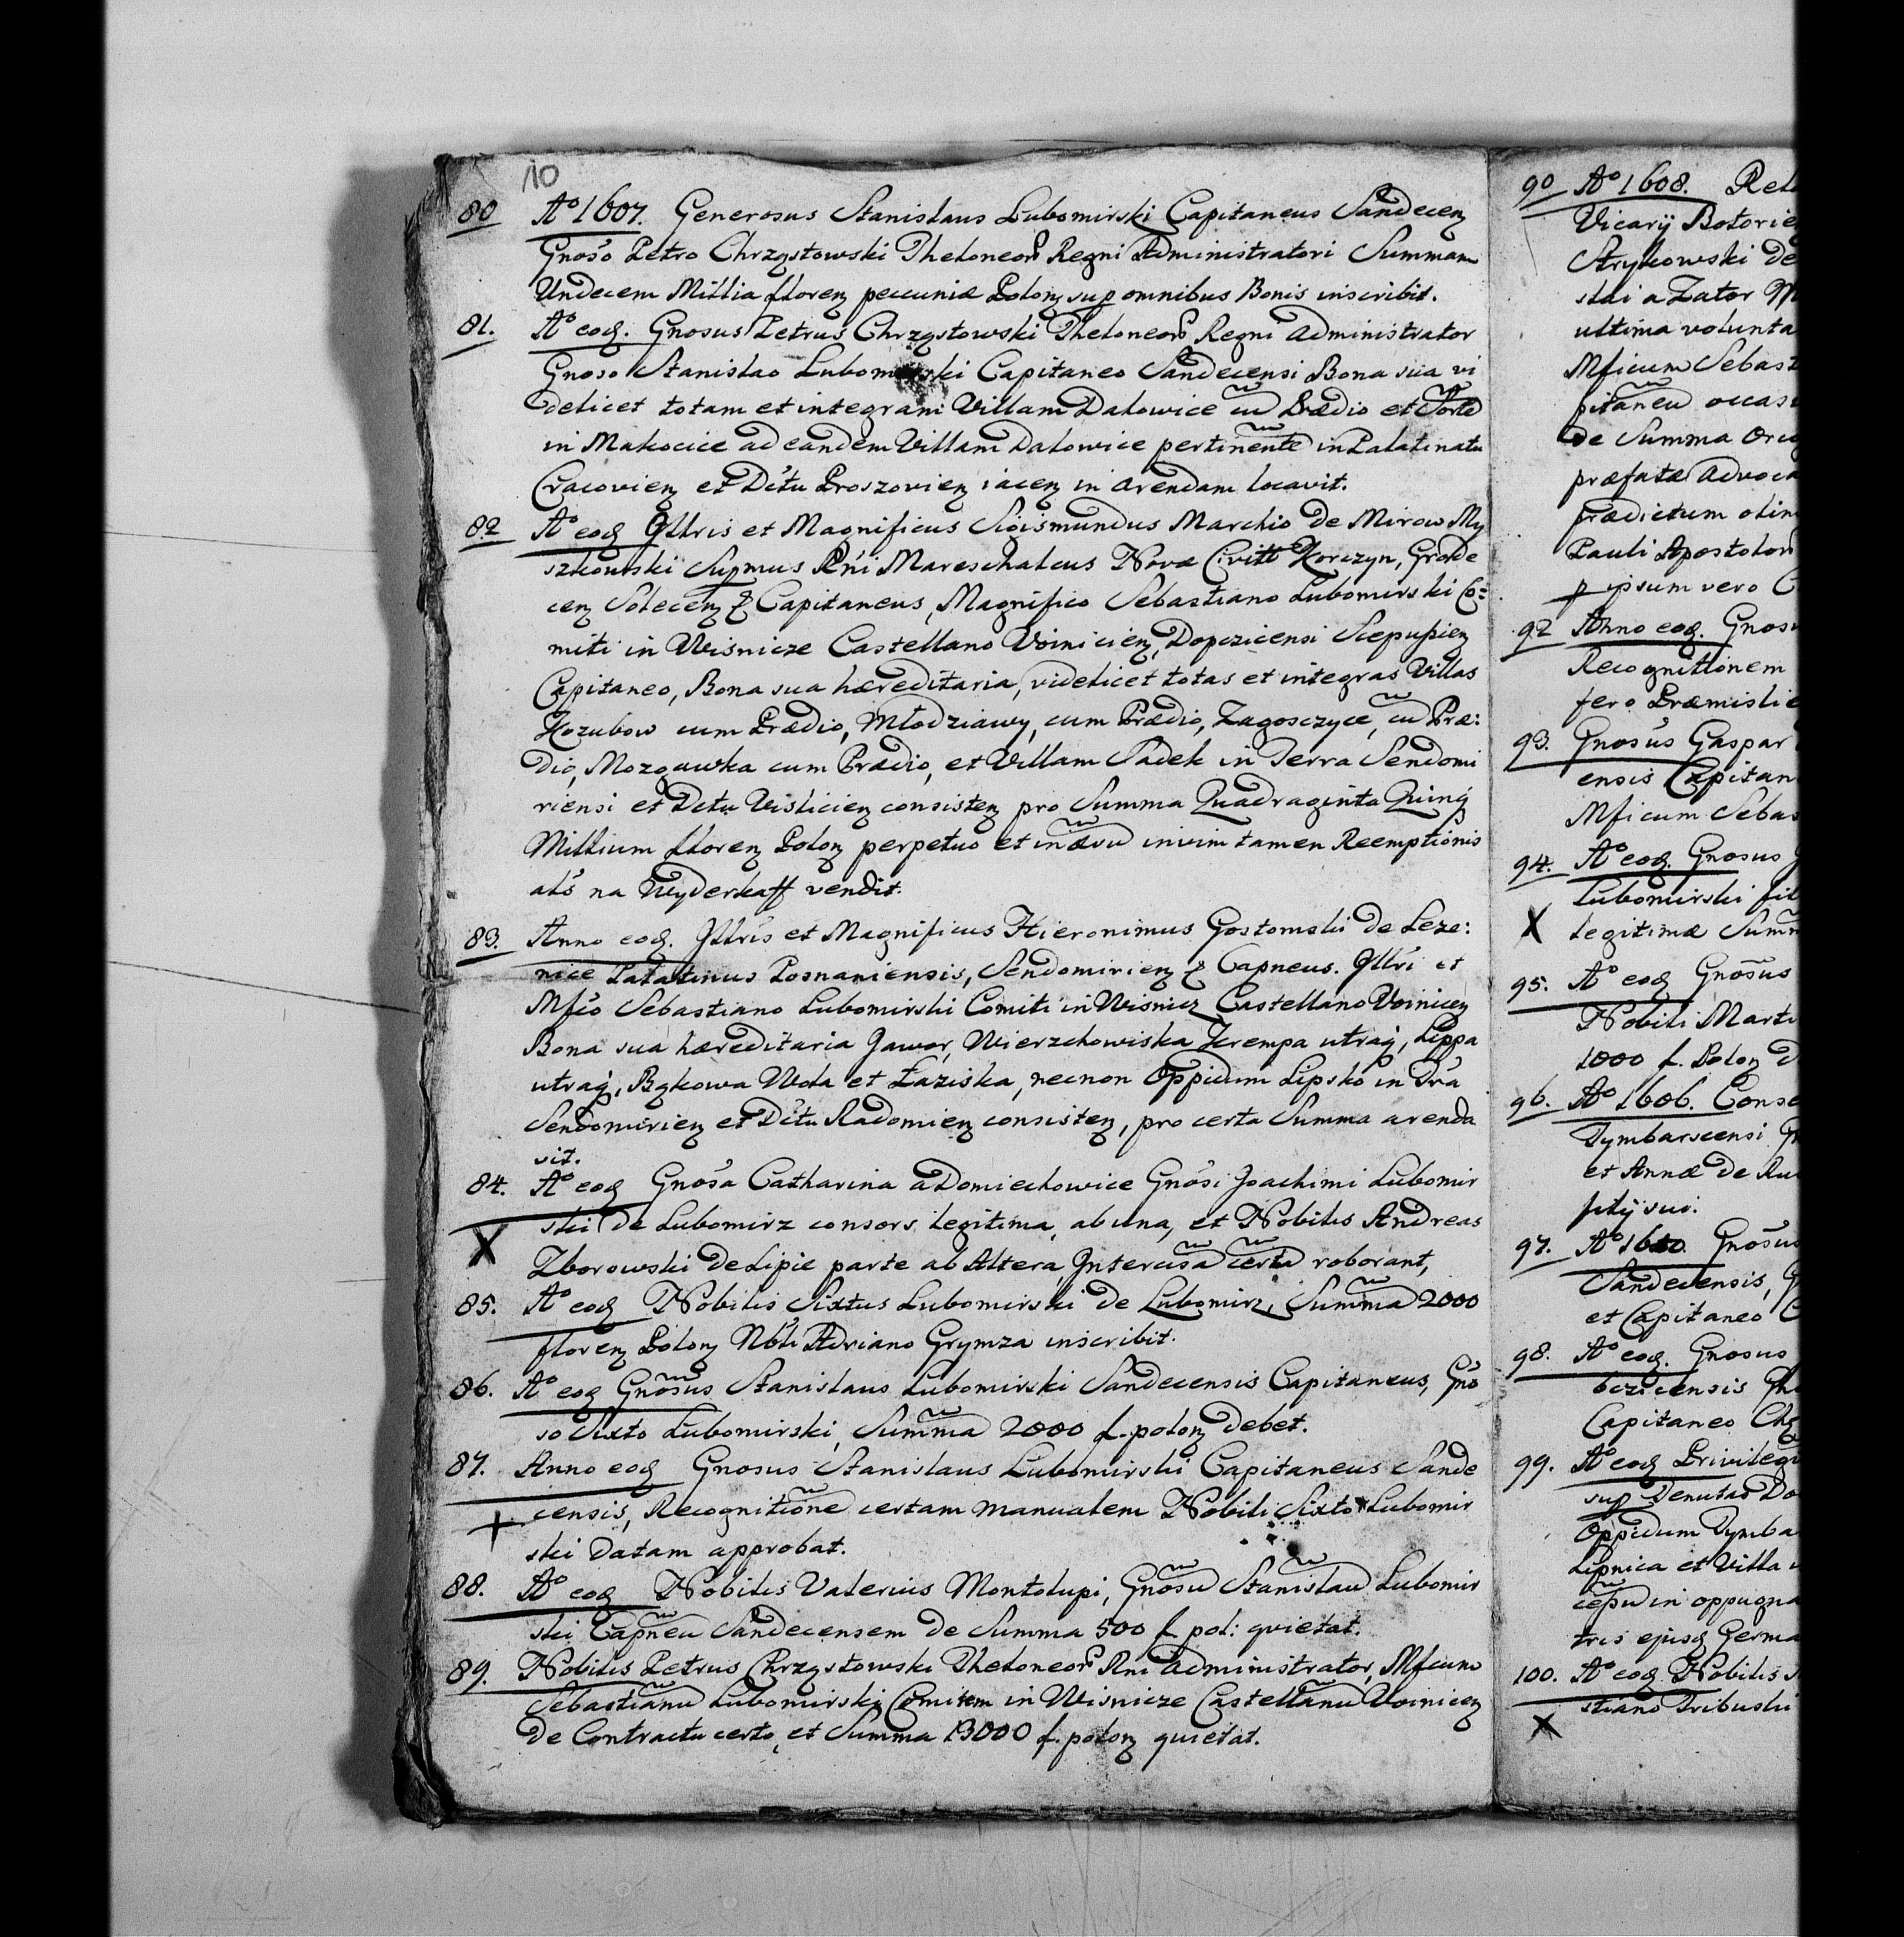 10
80 Aº 1607. Generosus Stanislaus Lubomirski Capitaneus Sandecen
Gnoso Petro Chrząstowski Theloneor Regni Administratori Summam
Undecem Millia floren pecuniæ Polon sup omnibus Bonis inscribit.
81. Aº eod. Gnosus Petrus Chrząstowski Theloneor Regni Administrator
Gnoso Stanislao Lubomirski Capitaneo Sandecensi Bona sua vi
delicet totam et integram Villam Dalowice cu Prædio et Sorte
in Makocice ad eandem Villam Dalowice pertinente in Palatinatu
Cracovien et Dctu Proszovien iacen in arendam locavit.
82 Aº eod Illris et Magnificus Sigismundus Marchio de Mirow My
szkowski Supmus Rni Mareschalcus Novæ Civitt Korczyn, Grode
cen Solecen & Capitaneus, Magnifico Sebastiano Lubomirski Co=
miti in Wisnicze Castellano Voinicien, Dopczicensi Scepusien
Capitaneo, Bona sua hæreditaria, videlicet totas et integras Villas
Kozubow cum Prædio, Młodziawy, cum Prædio, Zagosczyce, cu Præ:
dio, Mozgawka cum Prædio, et Villam Sadek in Terra Sendomi
riensi et Dctu Vislicien consisten pro Summa Quadraginta Quinq
Millium floren Polon perpetuo et inævu in vim tamen Reemptionis
als na Wyderkaff vendit.
83. Anno eod. Illris et Magnificus Hieronimus Gostomski de Leze:
nice Palatinus Posnaniensis, Sendomirien & Capneus. Illri et
Mfico Sebastiano Lubomirski Comiti in Wisnicz Castellano Voinicen
Bona sua hæreditaria Jawor, Wierzchowiska Krempa utraq, Lippa
utraq, Bąkowa Wola et Łaziska, necnon Oppidum Lipsko in Tra
Sendomirien et Dctu Radomien consisten, pro certa Summa arenda
vit.
84. Aº eod Gnosa Catharina a Domiechowice Gnosi Joachimi Lubomir
ski de Lubomirz consors legitima, ab una, et Nobilis Andreas
X Zborowski de Lipie parte ab Altera, Intercisa certa roborant,
85. Aº eod Nobilis Sixtus Lubomirski de Lubomirz, Summa 2000
floren Polon Nbli Adriano Grymza inscribit.
86. Aº eod Gnosus Stanislaus Lubomirski Sandecensis Capitaneus, Gno
so Sixto Lubomirski, Summa 2000 f. polon debet.
87. Anno eod Gnosus Stanislaus Lubomirski Capitaneus Sande
+ censis, Recognitione certam manualem Nobili Sixto Lubomir
ski Datam approbat.
88. Aº eod Nobilis Valerius Montolupi, Gnosu Stanislau Lubomir
ski Capneu Sandecensem de Summa 500 f. pol: quietat.
89. Nobilis Petrus Chrząstowski Theloneor Rni Administrator, Mficum
Sebastianu Lubomirski Comitem in Wisnicze Castellanu Voinicen
De Contractu certo, et Summa 13000 f. polon quietat.
90 Aº 1608. Rel
Vicarij Botorie
Strykowski de
ski a Zator M
ultima volunta
Mficum Sebast
pitaneu occasi
de Summa Orig
præfatæ Advoca
prædictum olim
Pauli Apostolor
p ipsum vero C
92 Anno eod. Gnos
Recognitionem
fero Præmislie
93. Gnosus Gaspar
ensis Capitan
Mficum Sebas
94. Aº eod. Gnosus
Lubomirski fil
X legitimæ Summ
95. Aº eod Gnosus
Nobili Marti
1000 f. Polon D
96. Aº 1606. Conse
Tymbarscensi
et Annæ de Ru
pitij sui.
97. Aº 1610. Gnosus
Sandecensis, G
et Capitaneo C
98. Aº eod. Gnosus
bczicensis
Capitaneo
99. Aº eod Privilegi
sup Denutas Do
Oppidum Tymba
Lipnica et Villa
cepu in oppugna
tris ejusd Germa
100. Aº eod Nobilis
X stiano Tribuski